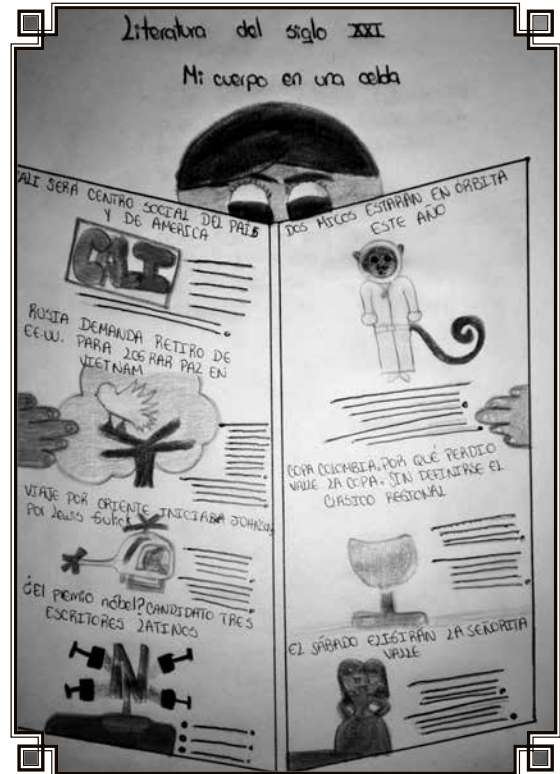 Literatura del siglo XXI
Mi cuerpo en una celda
CALI SERÁ CENTRO SOCIAL DEL PAÍS
Y DE AMERICA
CALI
RUSIA DEMANDA RETIRO DE
EE.UU. PARA LOGRAR PAZ EN
VIETNAM
VIAJE POR ORIENTE INICIARA JOHNSON
POR Lewis Gulick
¿El PREMIO nóbel? CANDIDATO TRES
ESCRITORES LATINOS
N
DOS MICOS ESTARÁN EN ÓRBITA
ESTE AÑO
COPA COLOMBIA. POR QUÉ PERDIO
VALLE LA COPA. SIN DEFINIRSE EL
CLASICO REGIONAL
EL SÁBADO ELIGIRÁN LA SEÑORITA
VALLE